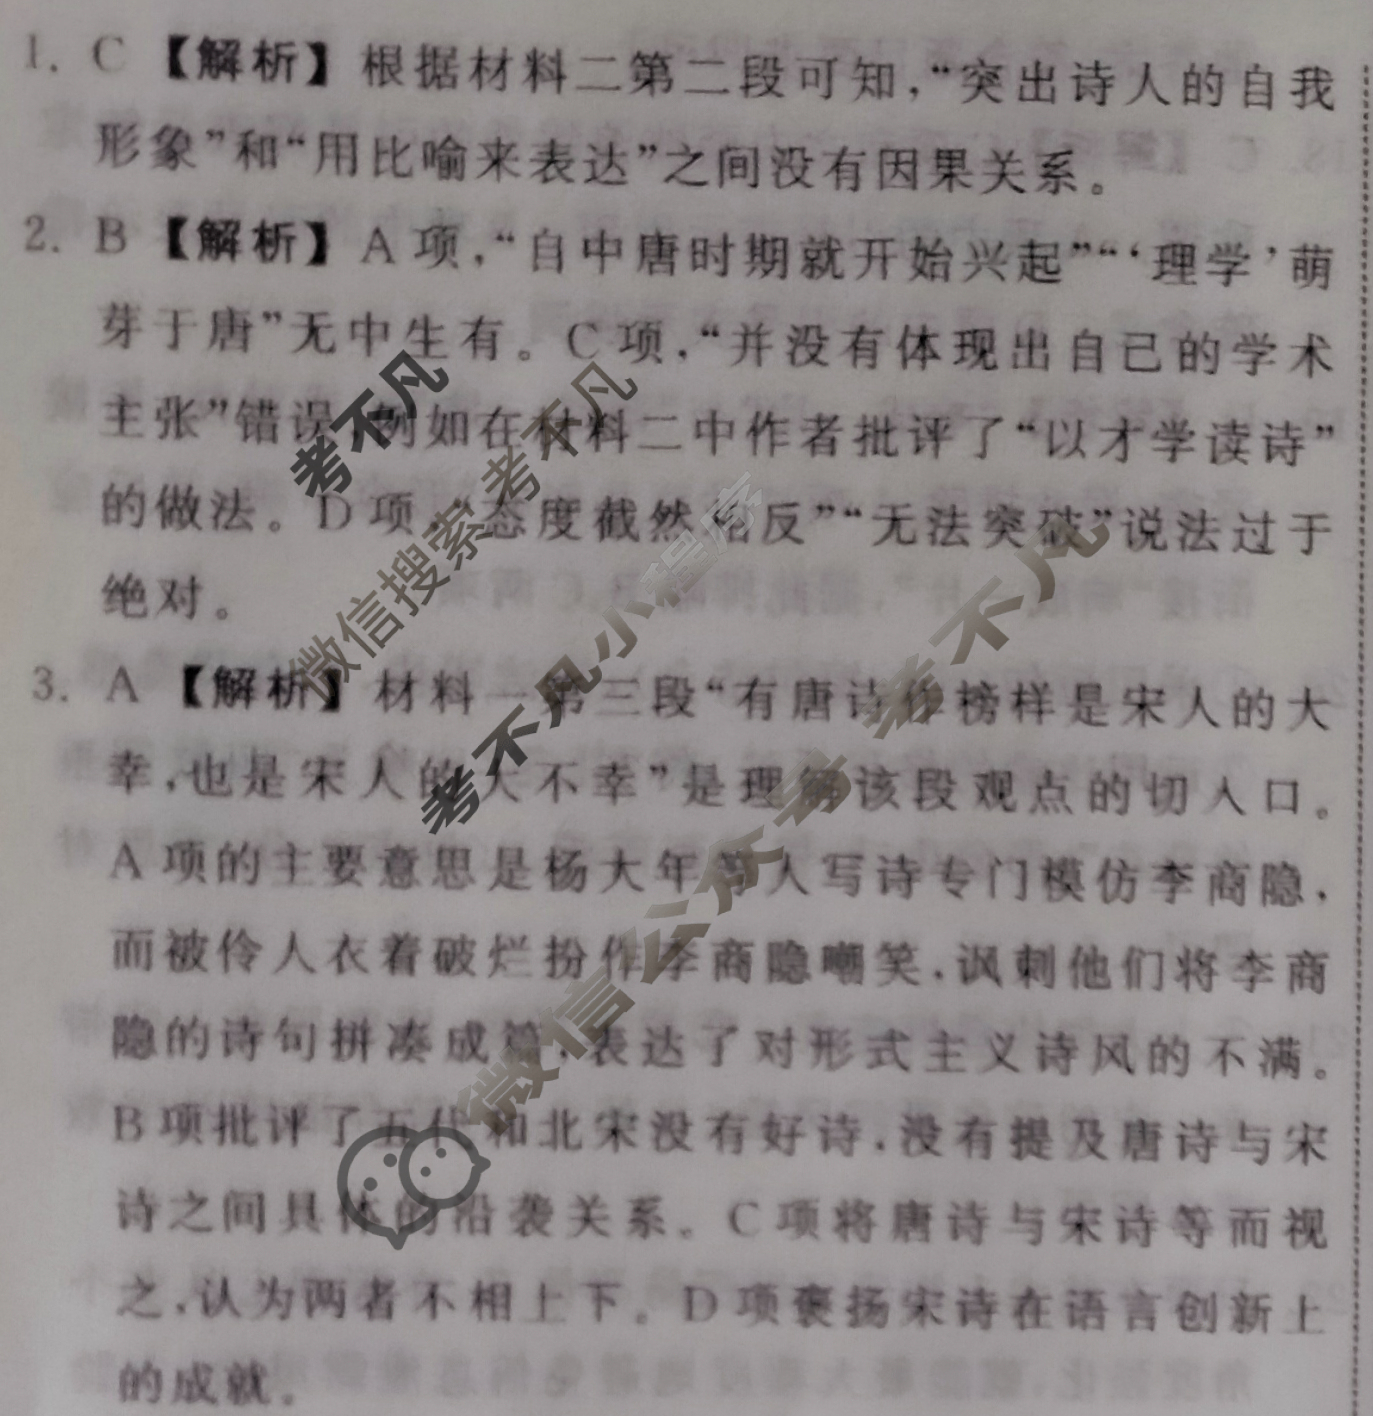 1. C 【解析】根据材料二第二段可知，“突出诗人的自我
形象”和“用比喻来表达”之间没有因果关系。
2. B 【解析】A 项，“自中唐时期就开始兴起”“‘理学’萌
芽于唐”无中生有。C 项，“并没有体现出自己的学术
主张”错误，例如在材料二中作者批评了“以才学读诗”
的做法。D 项，“态度截然相反”“无法突破”说法过于
绝对。
3. A 【解析】材料一第三段“有唐诗作榜样是宋人的大
幸，也是宋人的大不幸”是理解该段观点的切入口。
A 项的主要意思是杨大年等人写诗专门模仿李商隐，
而被伶人衣着破烂扮作李商隐嘲笑，讽刺他们将李商
隐的诗句拼凑成篇，表达了对形式主义诗风的不满。
B 项批评了五代和北宋没有好诗，没有提及唐诗与宋
诗之间具体的沿袭关系。C 项将唐诗与宋诗等而视
之，认为两者不相上下。D 项褒扬宋诗在语言创新上
的成就。
考不凡
微信搜索 考不凡
考不凡小程序
微信公众号 考不凡